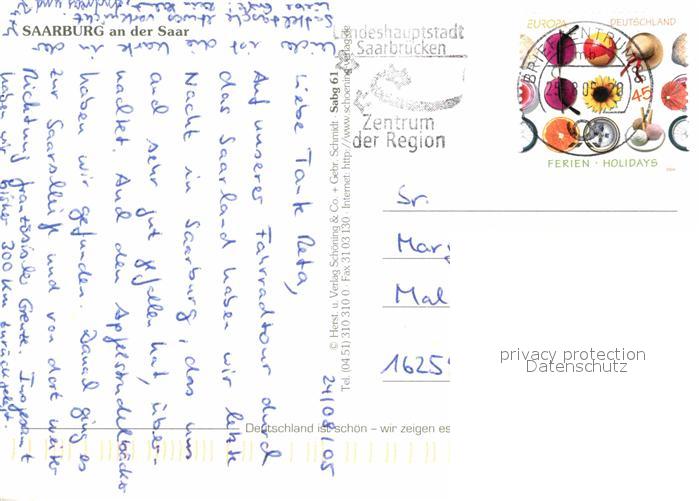 SAARBURG an der Saar
24/08/05
Liebe Tante Reta,
Auf unserer Fahrradtour durch
das Saarland haben wir letzte
Nacht in Saarburg, das uns
auch sehr gut gefallen hat, über-
nachtet. Auch den Apfelstrudelbäcker
haben wir gefunden. Danach ging es
zur Saarschleife und von dort weiter
Richtung französische Grenze. Insgesamt
haben wir bisher 300 km zurückgelegt.
© Herst. u. Verlag Schöning & Co. + Gebr. Schmidt · Sabg 61
Tel. (04 51) 310 310 0 · Fax 31 03 130 · Internet: http://www.schoening-verlag.de
Landeshauptstadt
Saarbrücken
Zentrum
der Region
EUROPA DEUTSCHLAND
BRIEFZENTRUM
45
FERIEN · HOLIDAYS
Sr.
Mar
Mal
1625
privacy protection
Datenschutz
Deutschland ist schön – wir zeigen es